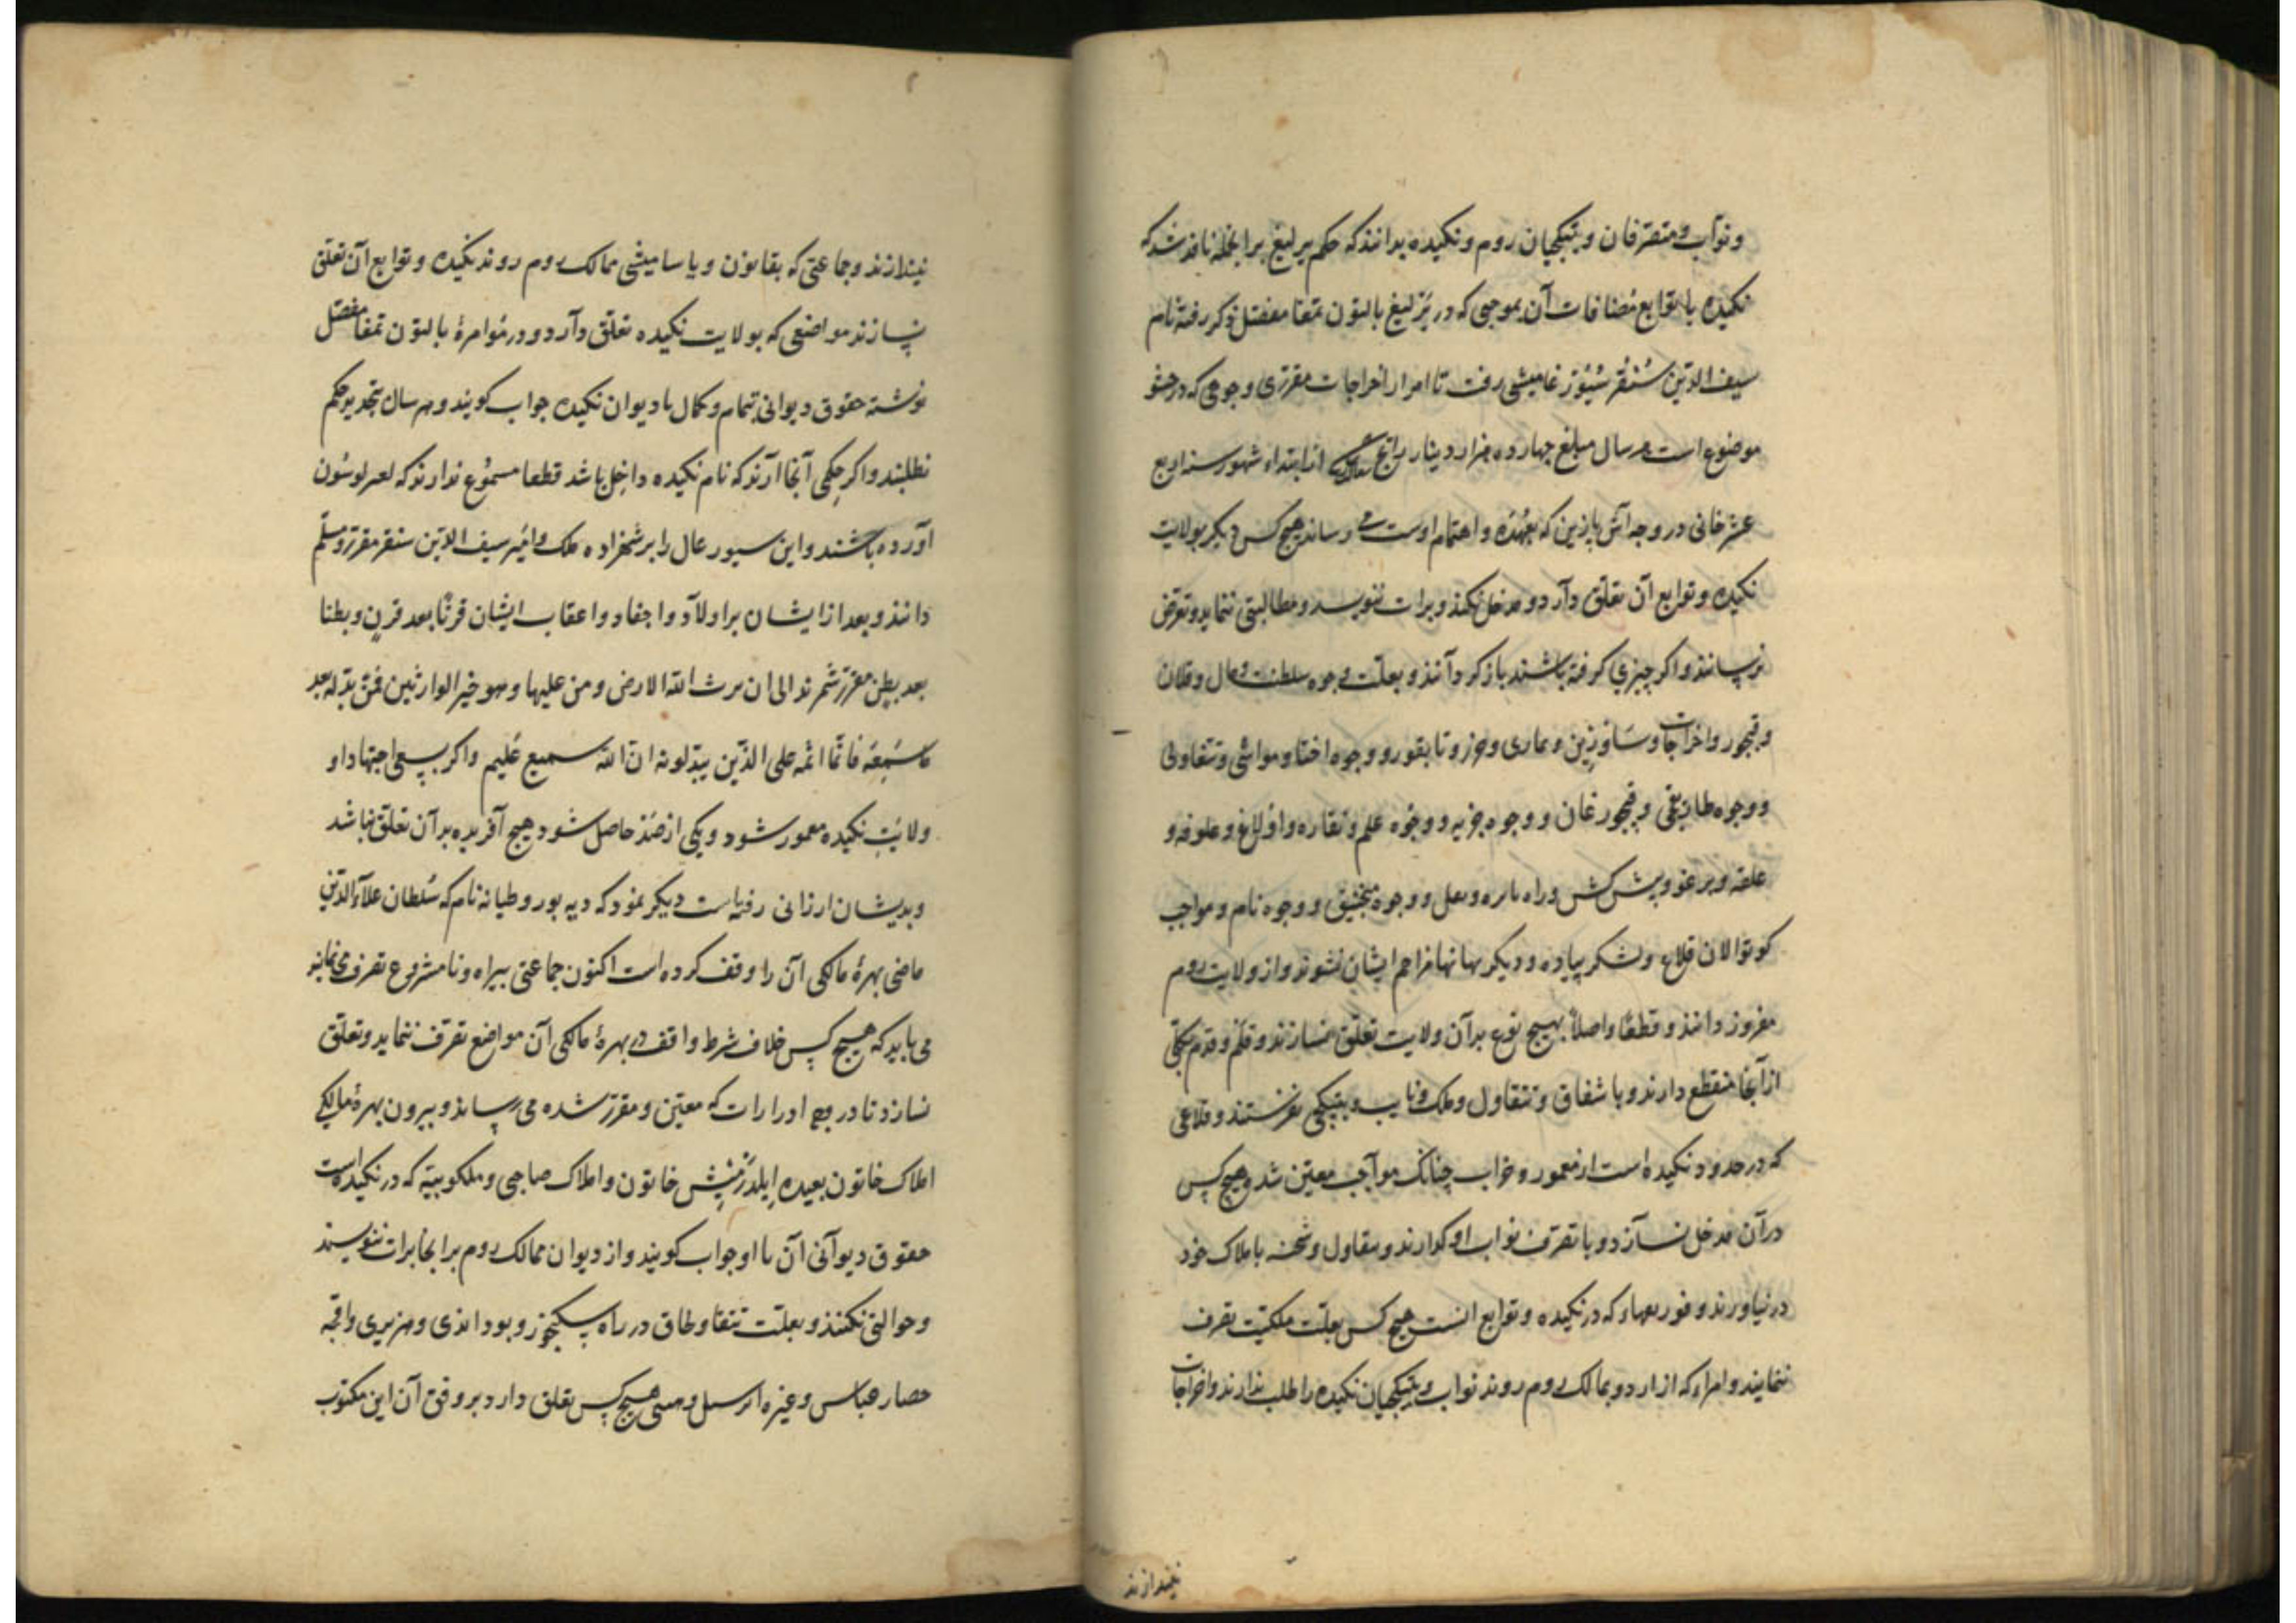 و نواب و متصرفان و بتیکچیان روم و نکیده بدانند که حکم یرلیغ برانجمله نافذ شد که
نکیده با توابع مضافات آن بموجبی که در یرلیغ بالتون تمغا مفصل ذکر رفته نام
سیف الدین سنقر سیورغامیشی رفت تا امرار اخراجات مقرری وجوهی که در حشو
موضوع است هر سال مبلغ چهارده هزار دینار رایج از ابتداء شهور سنه اربع
عشر خانی در وجه آش یازین که بعهده و اهتمام اوست می رساند هیچ کس دیکر بولایت
نکیده و توابع آن تعلق دارد و مدخل نکند و برات ننویسد و مطالبتی ننماید و تعرض
نرساند و اکر چیزی کرفته باشند باز کردانند و بعلت وجوه سلطنت و مال و قلان
و قبجور و اخراجات و ساوزین و عماری و تابقور و وجوه اختا و مواشی و تتقاولی
و وجوه طایقی و قبجور غان و وجوه جزیه و وجوه علم و نقاره و اولاغ و علوفه و
علفه و یرغو و پیش کش و راه و نعل و وجوه منجنیق و وجوه نام و مواجب
کوتوالان قلاع و لشکر پیاده و دیکر بهانها مزاحم ایشان نشوند و از ولایت روم
مفروز دانند و قطعا و اصلا بهیچ نوع بر آن ولایت تعلق نسازند و قلم و قدم بکلی
از آنجا منقطع دارند و باشقاق و تتقاول و ملک و نایب و بتیکچی نفرستند و قلاعی
که در حدود نکیده است از معمور و خراب چنانک مواجب معین شد و هیچ کس
در آن مدخل نسازد و با تصرف نواب او کذارند و تتقاول و شحنه باملاک خود
در نیاورند و که در نکیده و توابع آنست هیچ کس بعلت ملکیت تصرف
ننمایند و امراء که از اردو بممالک روم روند نواب و بتیکچیان نکیده را طلب ندارند و اخراجات
نیندازند
نیندازند و جماعتی که بقانون و یاسامیشی ممالک روم روند نکیده و توابع آن تعلق
نسازند مواضعی که بولایت نکیده تعلق دارد و در مؤامرۀ بالتون تمغا مفصل
نوشته حقوق دیوانی بتمام و کمال با دیوان نکیده جواب کویند و هر سال بتجدید حکم
نطلبند و اکر حکمی آنجا آرند که نام نکیده داخل باشد قطعا مسموع ندارند که
آورده باشند و این سیورغال را بر شهزاده ملک و امیر سیف الدین سنقر مقرر و مسلم
دانند و بعد از ایشان بر اولاد و احفاد و اعقاب ایشان قرنا بعد قرن و بطنا
بعد بطن مقرر شمرند الی ان یرث الله الارض و من علیها و هو خیر الوارثین فمن بدله بعد
ما سمعه فانما اثمه علی الذین یبدلونه ان الله سمیع علیم و اکر بسعی اجتهاد او
ولایت نکیده معمور شود و یکی از صد حاصل شود هیچ آفریده بر آن تعلق نباشد
و بدیشان ارزانی رفته است دیکر نمود که دیه بور و طیانه نام که سلطان علاءالدین
ماضی بهرۀ مالکی آن را وقف کرده است اکنون جماعتی بیراه و نامشروع تصرف می نمایند
می باید که هیچ کس خلاف شرط واقف در بهرۀ مالکی آن مواضع تصرف ننماید و تعلق
نسازد تا در وجه ادرارات که معین و مقرر شده می رساند و بیرون بهرۀ مالکی
املاک خاتون بعیده ایلدزمیش خاتون و املاک صاحبی و ملکوبیته که در نکیده است
حقوق دیوانی آن با او جواب کویند و از دیوان ممالک روم بر آنجا برات ننویسند
و حوالتی نکنند و بعلت تتقاول و طاق در راه و بود اندی و هزبری و اقجه
حصار عباس و غیره هیچ کس تعلق دارد بر وفق آن این مکتوب